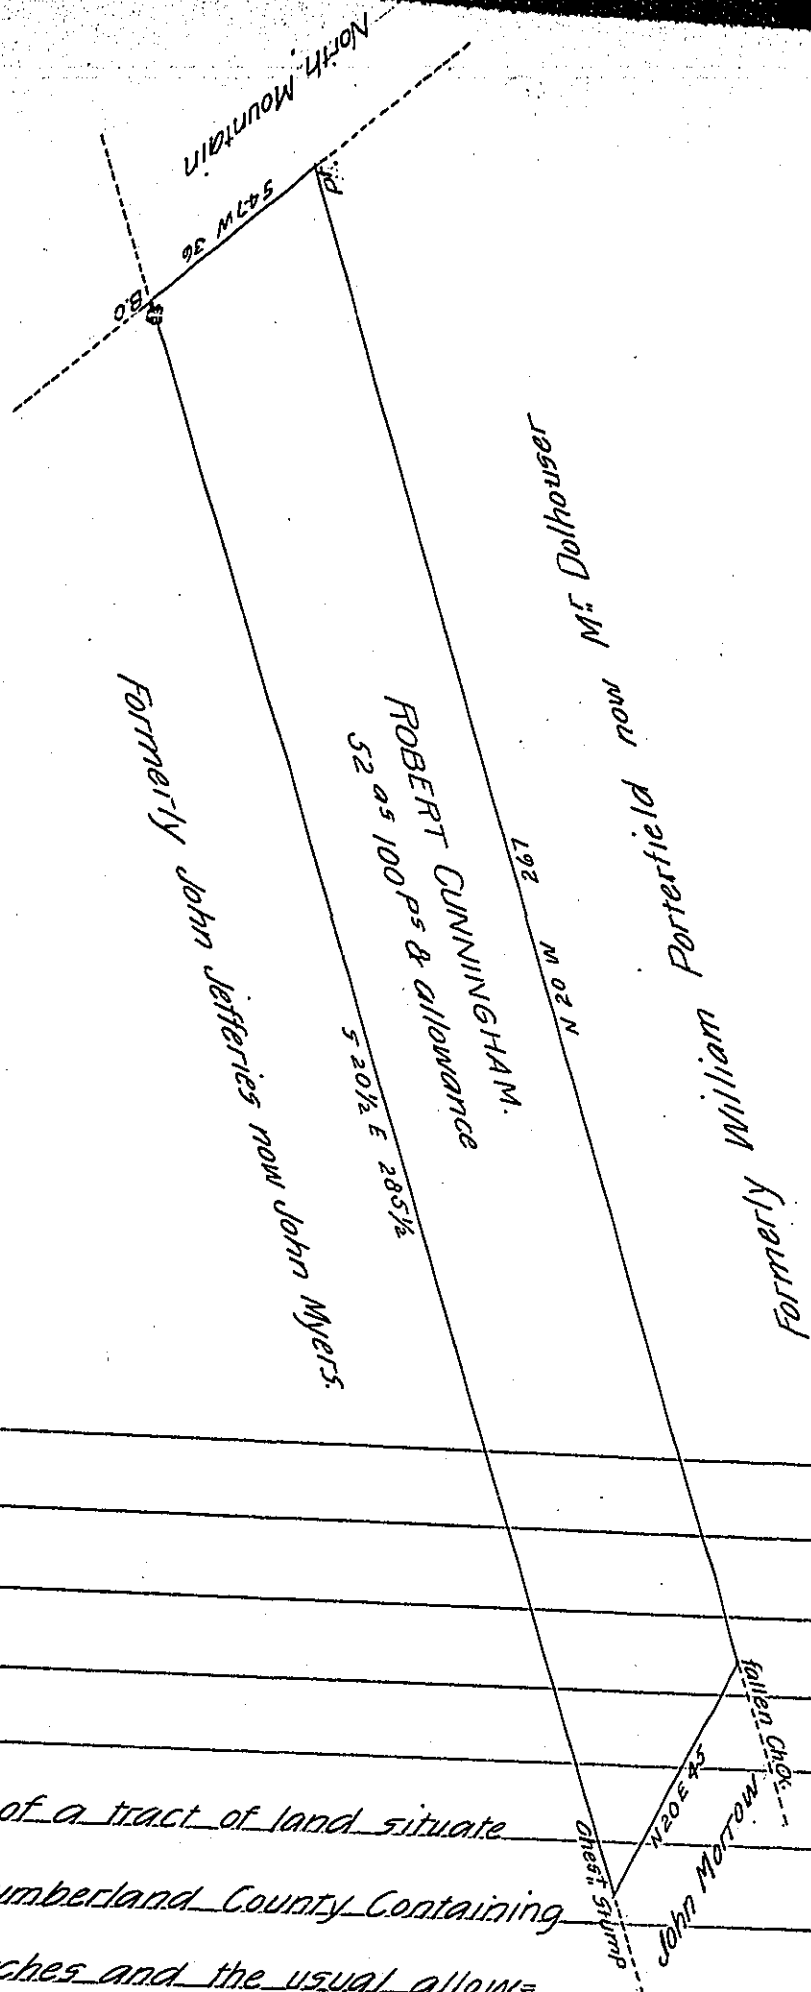 North Mountain
S 47 W 36
pd.
B.O
Formerly William Porterfield now Mr. Dolhouser
267 N 20 W
ROBERT CUNNINGHAM.
52 as 100 ps & allowance
S 20½ E 285½
Formerly John Jefferies now John Myers.
fallen Ch.Ok.
N 20 E 45
John Morrow
Chest. Stump
of a tract of land situate
umberland County Containing
ches and the usual allow=